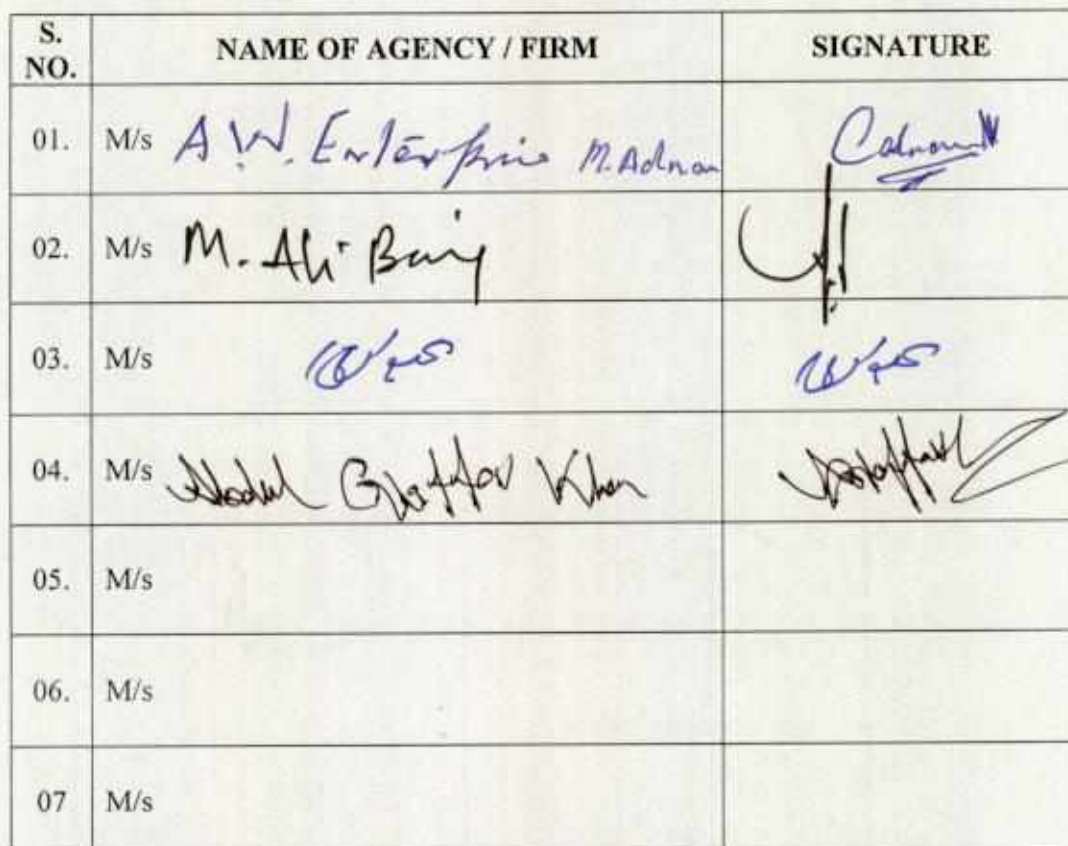 S. NO. NAME OF AGENCY / FIRM SIGNATURE
01. M/s A.W. Enterprise M. Adnan
02. M/s M. Ali Baig
03. M/s
04. M/s Abdul Ghaffar Khan
05. M/s
06. M/s
07 M/s